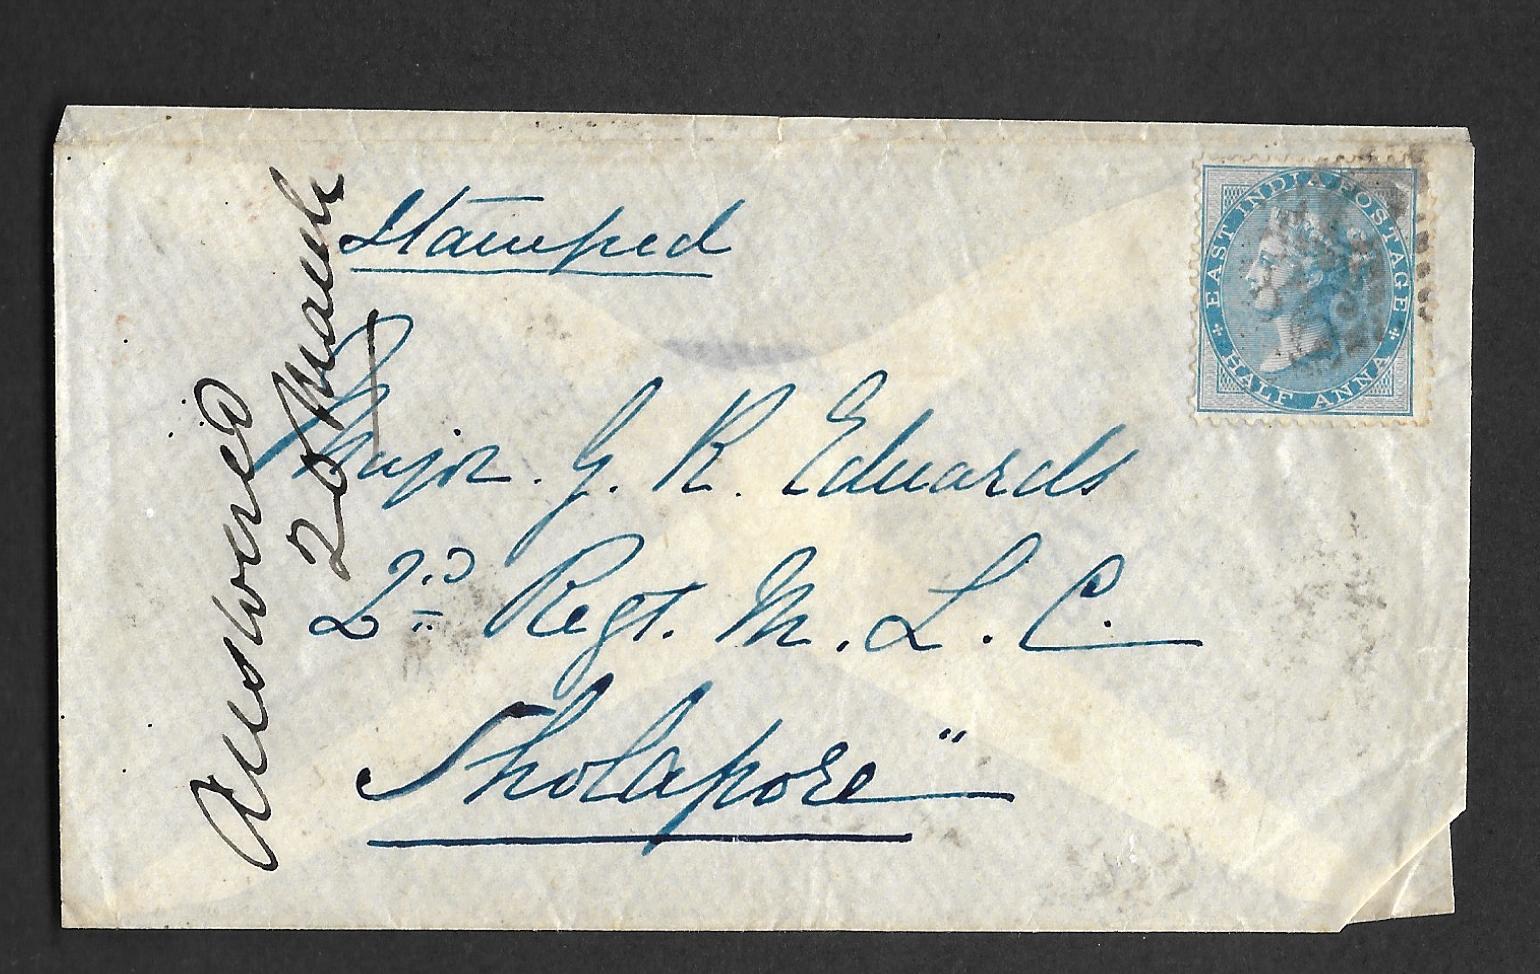 Stamped
Major. G. R. Edwards
2nd Regt. M. L. C.
Sholapore"
Answered
20 March
EAST INDIA POSTAGE
HALF ANNA